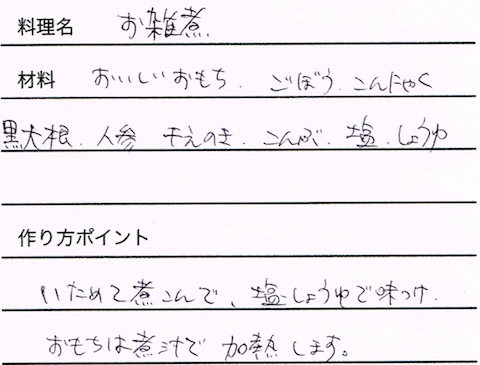 料理名 お雑煮
材料 おいしいおもち. ごぼう. こんにゃく
黒大根. 人参 干えのき. こんぶ. 塩. しょうゆ
作り方ポイント
いためて煮こんで、塩しょうゆで味つけ.
おもちは煮汁で加熱します。